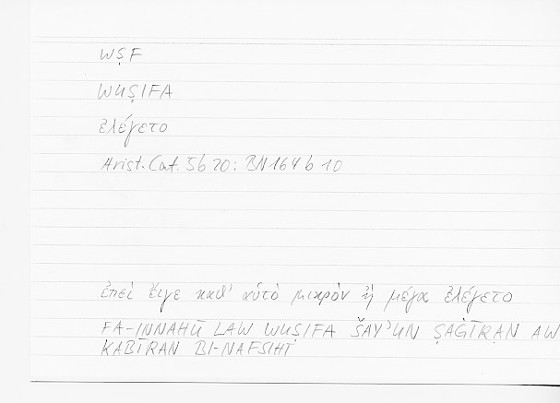 WṢF
WUṢIFA
ἐλέγετο
Arist. Cat. 5b 20: BN 164 b 10
ἐπεὶ εἴγε καθ' αὑτὸ μικρὸν ἢ μέγα ἐλέγετο
FA-INNAHŪ LAW WUṢIFA ŠAY'UN ṢAĠĪRAN AW
KABĪRAN BI-NAFSIHĪ